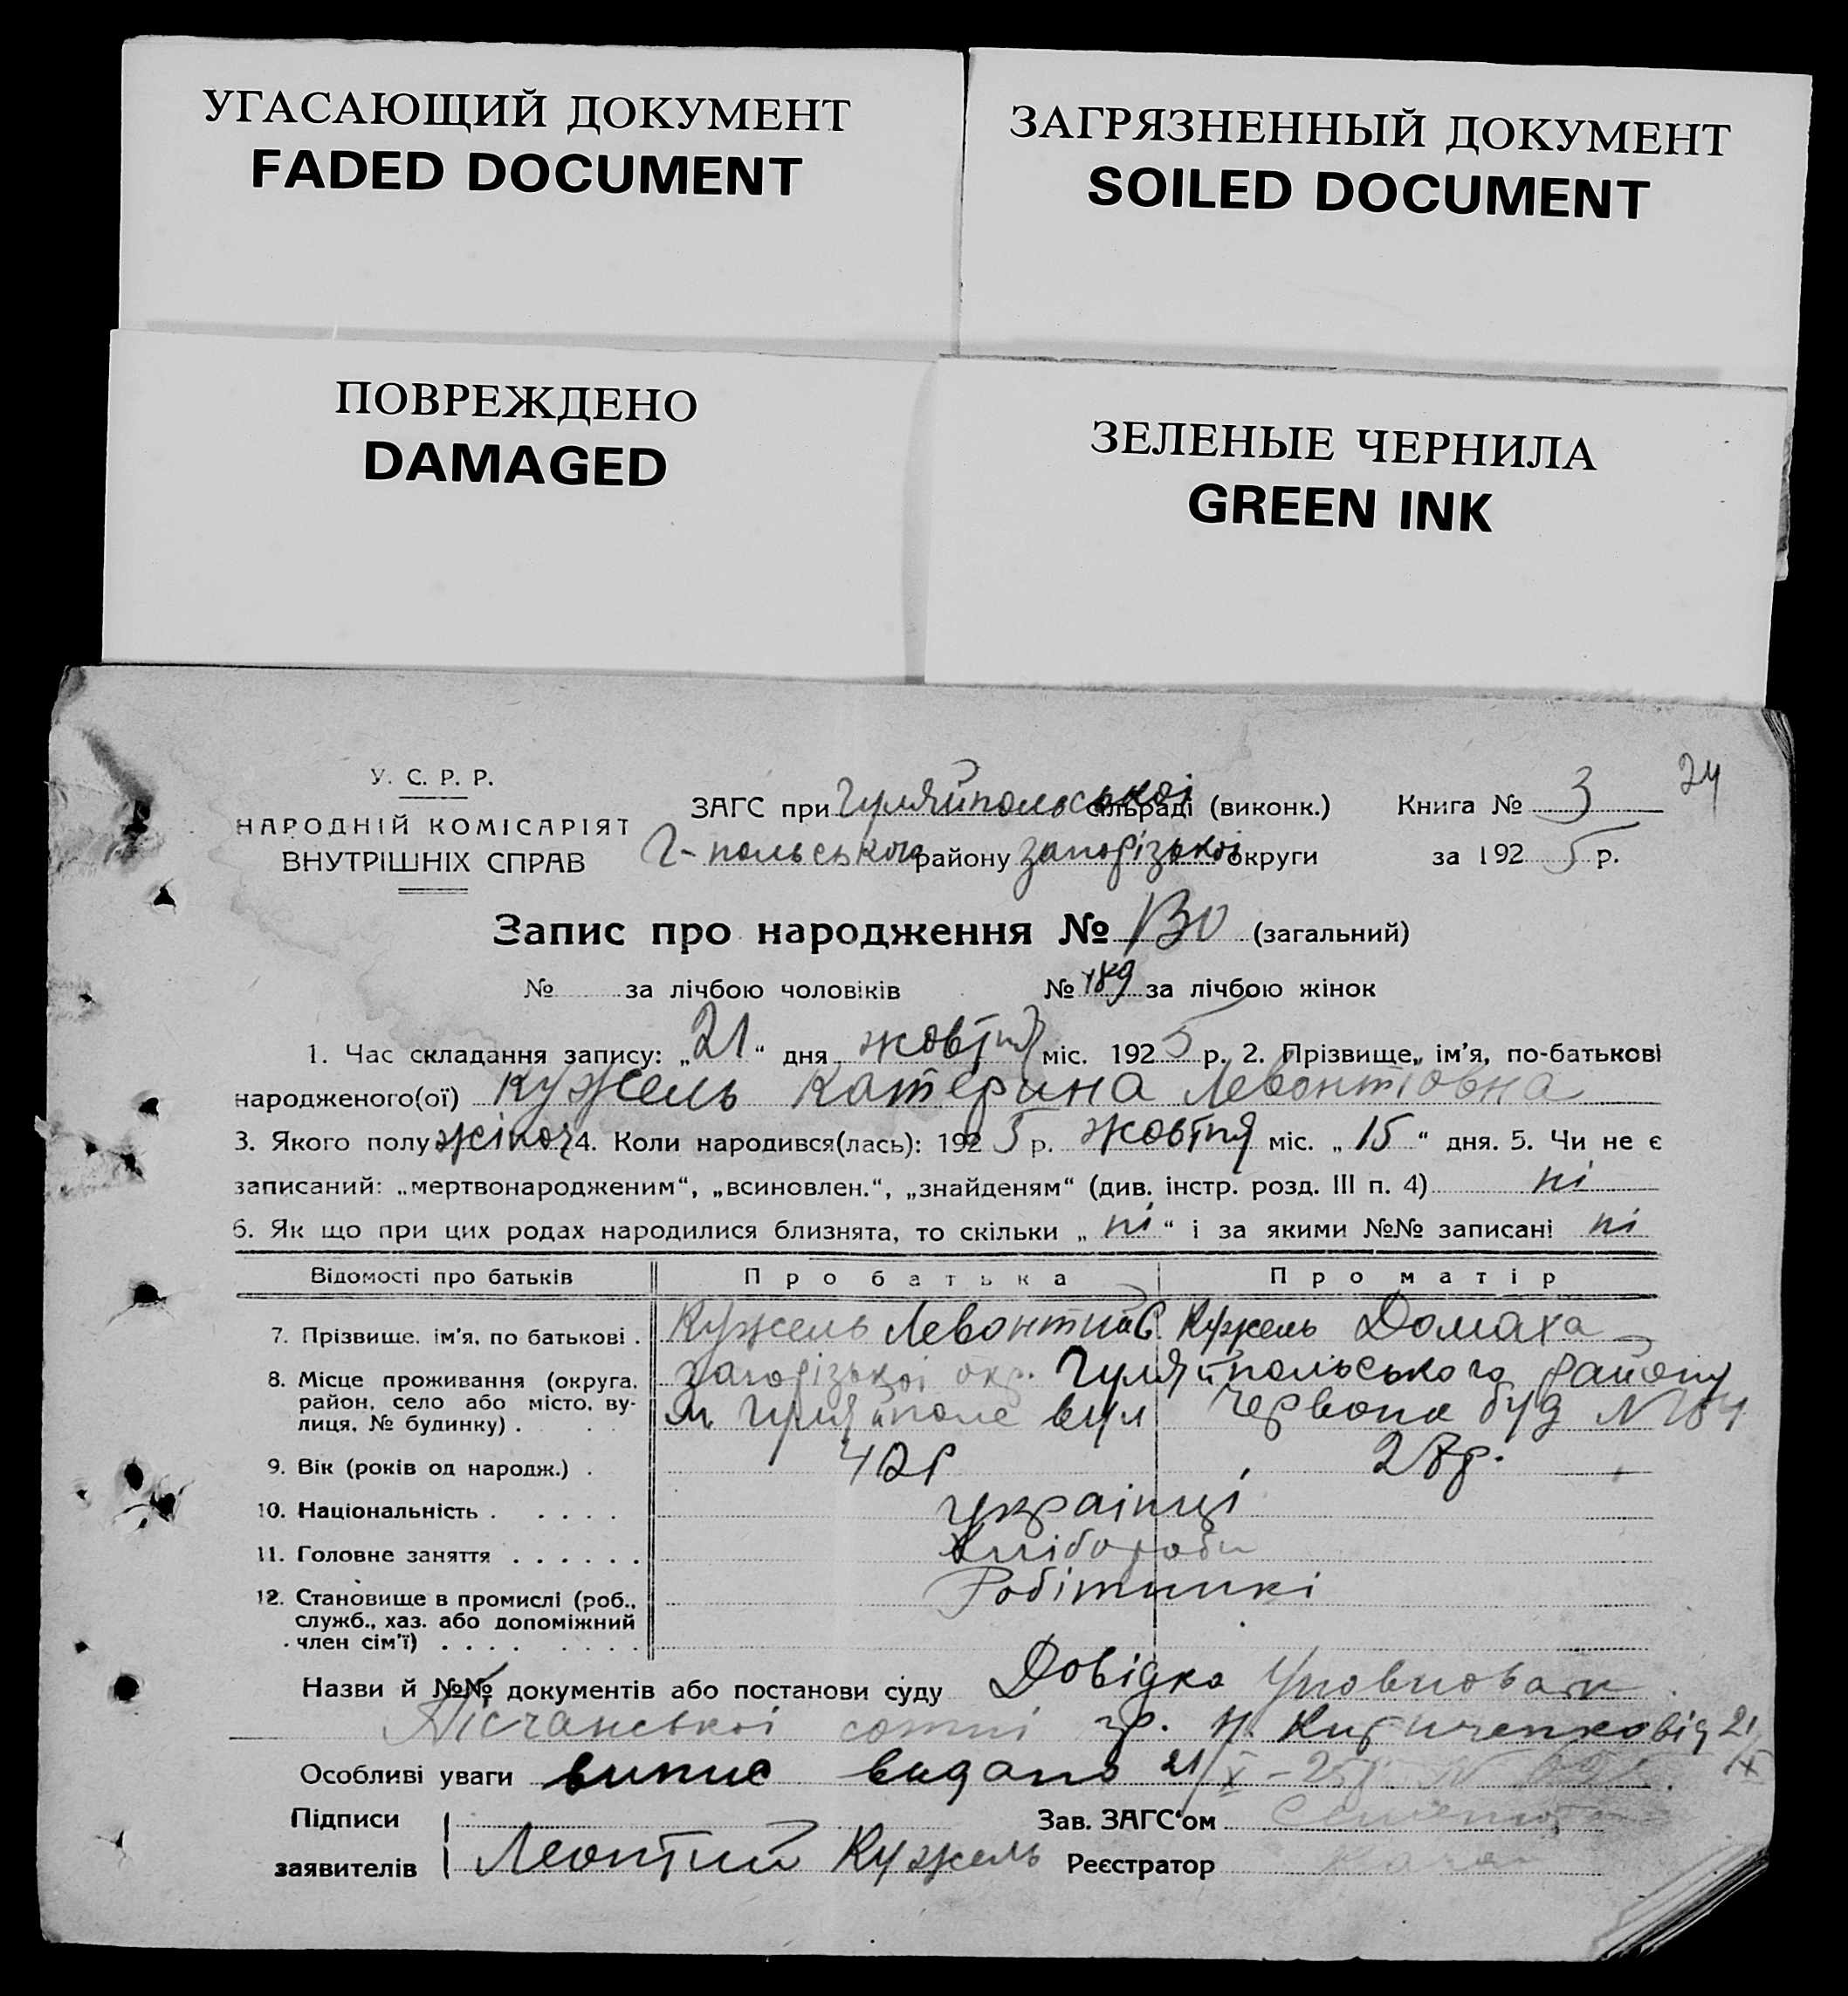 УГАСАЮЩИЙ ДОКУМЕНТ
FADED DOCUMENT
ЗАГРЯЗНЕННЫЙ ДОКУМЕНТ
SOILED DOCUMENT
ПОВРЕЖДЕНО
DAMAGED
ЗЕЛЕНЫЕ ЧЕРНИЛА
GREEN INK
24
У. С. Р. Р.
НАРОДНІЙ КОМІСАРІЯТ
ВНУТРІШНІХ СПРАВ
ЗАГС при Гуляйпольської сільраді (виконк.) Книга № 3
Г-польського району Запорізької округи за 1925 р.
Запис про народження № (загальний)
№ за лічбою чоловіків № 189 за лічбою жінок
1. Час складання запису: „21“ дня жовтня міс. 1925 р. 2. Прізвище, ім'я, по-батькові
народженого(ої) Кужель Катерина Левонтіовна
3. Якого полу жіноч 4. Коли народився(лась): 1925 р. жовтня міс. „15“ дня. 5. Чи не є
записаний: „мертвонародженим“, „всиновлен.“, „знайденям“ (див. інстр. розд. III п. 4) ні
6. Як що при цих родах народилися близнята, то скільки „ні“ і за якими №№ записані ні
Відомості про батьків Про батька Про матір
7. Прізвище, ім'я, по батькові . Кужель Левонтий Кужель Домаха
8. Місце проживання (округа, район, село або місто, вулиця, № будинку) . Запорізької окр. Гуляйпольського району
м. Гуляйполе вул Червона буд №
9. Вік (років од народж.) . 42р 28р.
10. Національність . українці
11. Головне заняття . Хлібороби
12. Становище в промислі (роб., служб., хаз. або допоміжний член сім'ї) Робітникі
Назви й №№ документів або постанови суду Довідка Уповноваж
Пісчанської сотні гр. Н. Кириченко від 21/X
Особливі уваги випис видано 21/X – 25р. №
Підписи заявителів Леонтий Кужель
Зав. ЗАГС'ом
Реєстратор